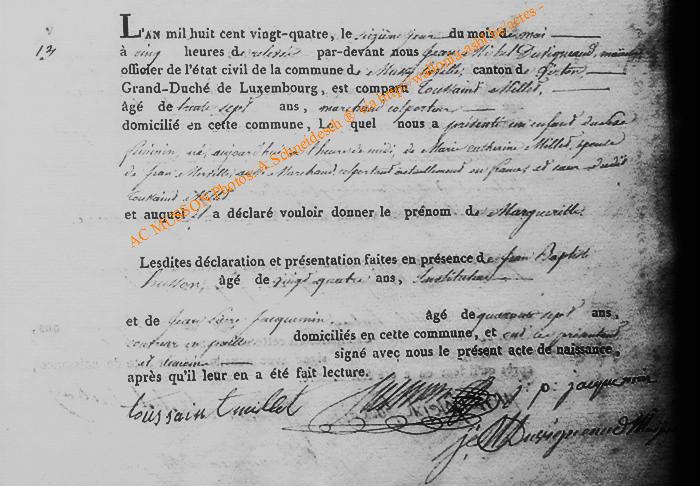 13
L'AN mil huit cent vingt-quatre, le seizième jour du mois de mai
à cinq heures de relevée par-devant nous Jean Michel Duvigneaud,
officier de l'état civil de la commune de Musson, canton de
Grand-Duché de Luxembourg, est comparu Toussaint Millet,
âgé de trente sept ans, marchand colporteur
domicilié en cette commune, Lequel nous a présenté un enfant du sexe
féminin, né, aujourd'hui à l'heure de midi, de Marie Catherine Millet, épouse
de Jean aussi Marchand colporteur actuellement en france et sœur dudit
Toussaint Millet
et auquel il a déclaré vouloir donner le prénom de Marguerite
Lesdites déclaration et présentation faites en présence de Jean Baptiste
Husson, âgé de vingt quatre ans, Instituteur
et de Jean Pierre Jacquemin, âgé de quarante sept ans,
couvreur en paille domiciliés en cette commune, et ont les présentant
et témoins signé avec nous le présent acte de naissance,
après qu'il leur en a été fait lecture.
toussaint millet
j. p. jacquemin
AC MUSSON Photos: A. Schneidesch @ via http://
actes -